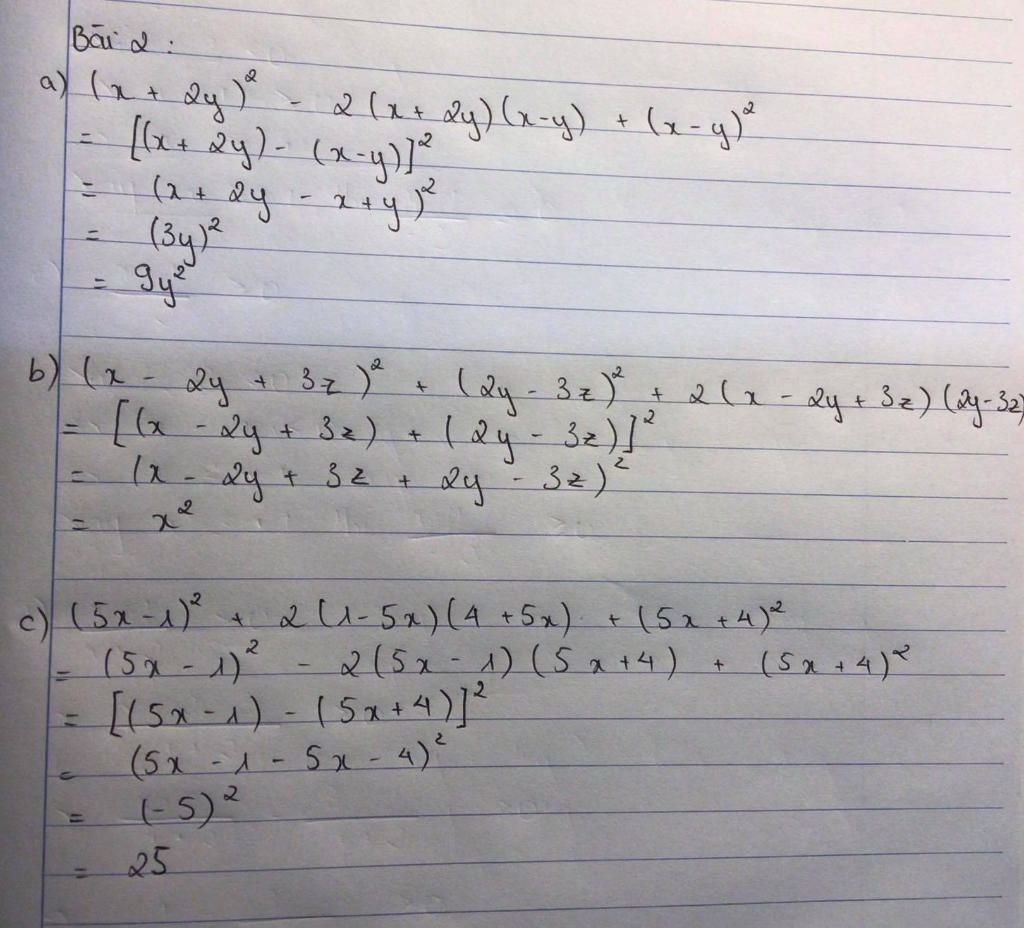 Bài 2 :
a) (x + 2y)² - 2(x + 2y)(x-y) + (x-y)²
= [(x + 2y) - (x-y)]²
= (x + 2y - x + y)²
= (3y)²
= 9y²
b) (x - 2y + 3z)² + (2y - 3z)² + 2(x - 2y + 3z)(2y-3z)
= [(x - 2y + 3z) + (2y - 3z)]²
= (x - 2y + 3z + 2y - 3z)²
= x²
c) (5x-1)² + 2(1-5x)(4+5x) + (5x+4)²
= (5x - 1)² - 2(5x - 1)(5x+4) + (5x+4)²
= [(5x-1) - (5x+4)]²
= (5x - 1 - 5x - 4)²
= (-5)²
= 25